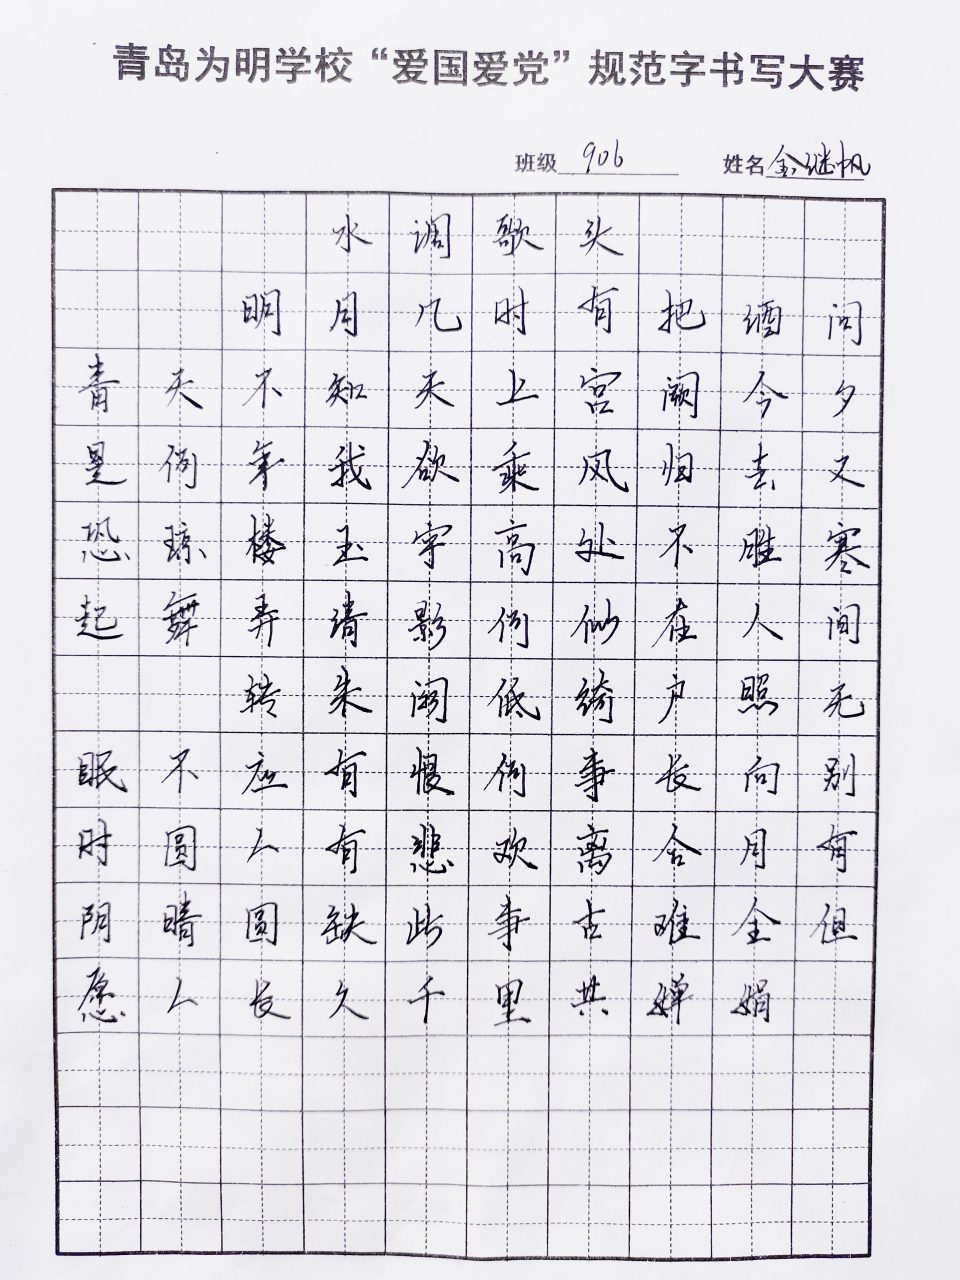 青岛为明学校“爱国爱党”规范字书写大赛
班级 906 姓名 金继帆
水调歌头
明月几时有把酒问
青天不知天上宫阙今夕
是何年我欲乘风归去又
恐琼楼玉宇高处不胜寒
起舞弄清影何似在人间
转朱阁低绮户照无
眠不应有恨何事长向别
时圆人有悲欢离合月有
阴晴圆缺此事古难全但
愿人长久千里共婵娟